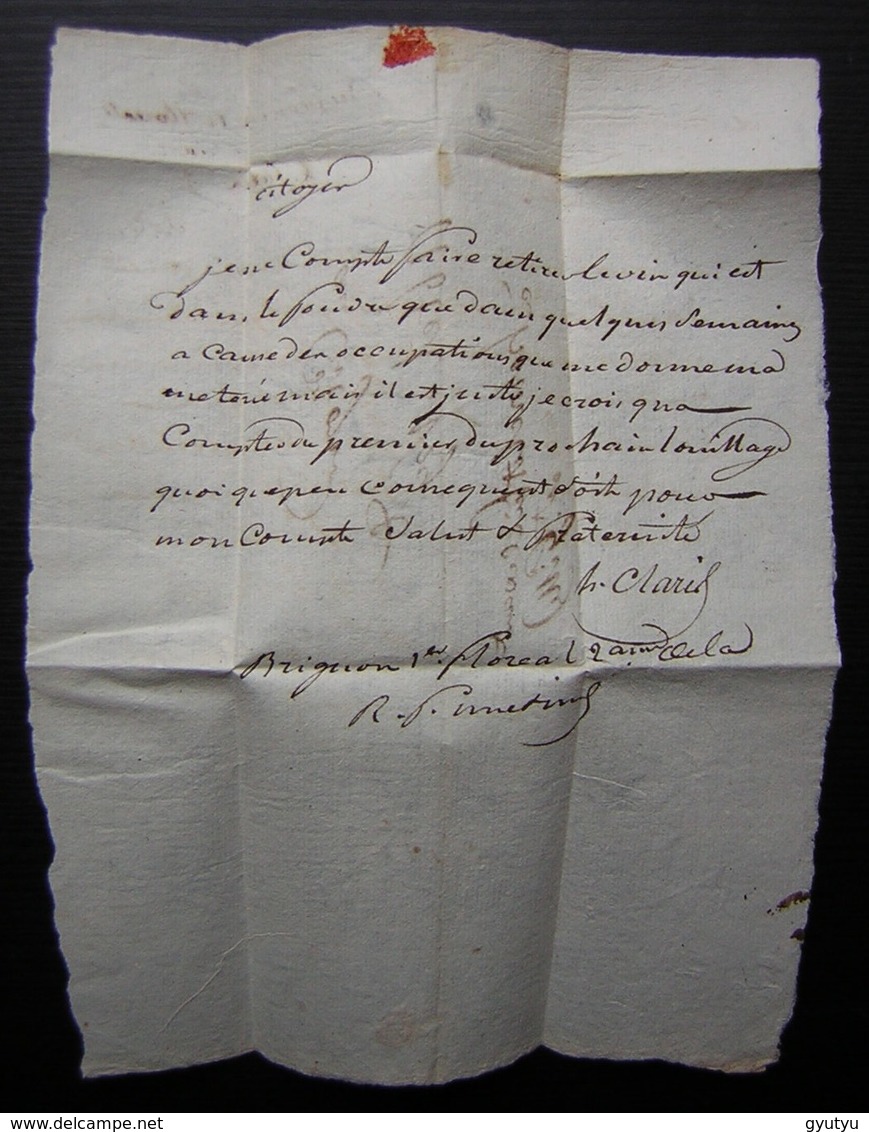 citoyen
je ne Compte faire retirer le vin qui est
dans le foudre que dans quelques Semaines
a Cause des occupations que me donne ma
mais il est juste je crois qua
Compter du premier du prochain louillage
quoique peu Consequent soit pour
mon Compte Salut & Fraternité
h. Claris
Brignon 1er floreal 2 anne de la
R. f.
gyutyu